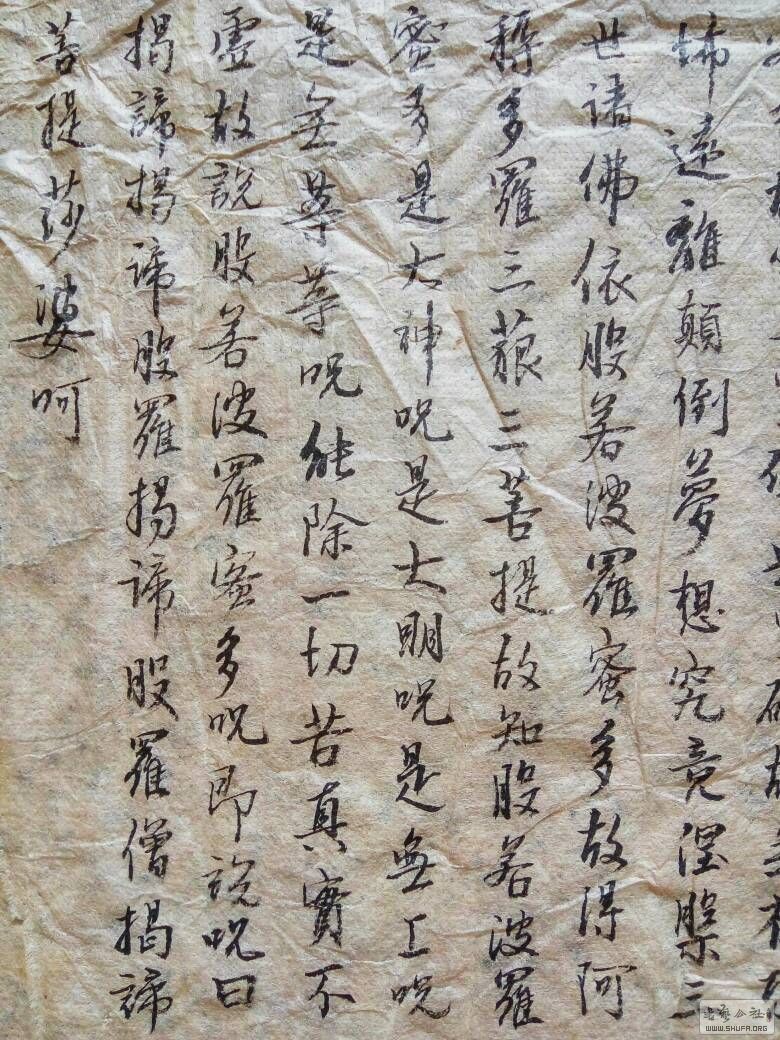 怖遠離顛倒夢想究竟涅槃三
世諸佛依般若波羅蜜多故得阿
耨多羅三藐三菩提故知般若波羅
蜜多是大神呪是大明呪是無上呪
是無等等呪能除一切苦真實不
虛故說般若波羅蜜多呪即說呪曰
揭諦揭諦般羅揭諦般羅僧揭諦
菩提莎婆呵
WWW.SHUFA.ORG